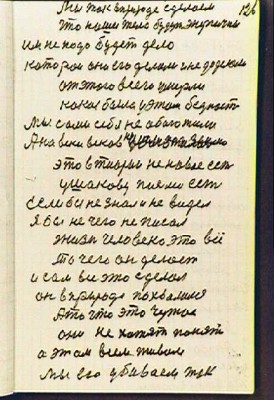 Мы так в природе сделаем 126
что наши тела будут энергии
им не надо будет дела
которои они его делам и не доделали
от этого всего умерли
какая была у этом беднаст
Мы сами себя не обагатили
А на веки веков
это в тиории не новое ест
ушакову поеми ест
Если бы не знали не видел
Я бы не чего не писал
жизни человека это всё
то чего он делает
и сам все это сделал
он в природе похвалился
А то что это чужоя
они не хотят понят
а этом всем живом
мы его убиваем так